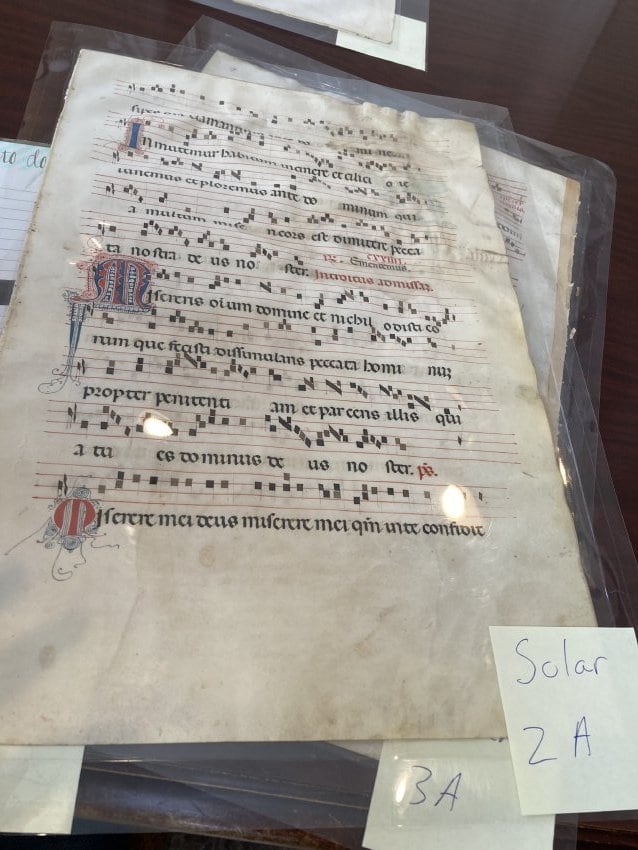 to do
In mutemur habitum cinere et cilici
iunemus et ploremus ante do minum qui
a multum mise ricors est dimittere pecca
ta nostra de us no ster.
Emendemus.
Introitus
Misereris oium domine et nichil odisti eo
rum que fecisti dissimulans peccata homi num
propter penitenti am et parcens illis qui
a tu es dominus de us no ster. ps.
Miserere mei deus miserere mei qm in te confidit
Solar
2 A
3A